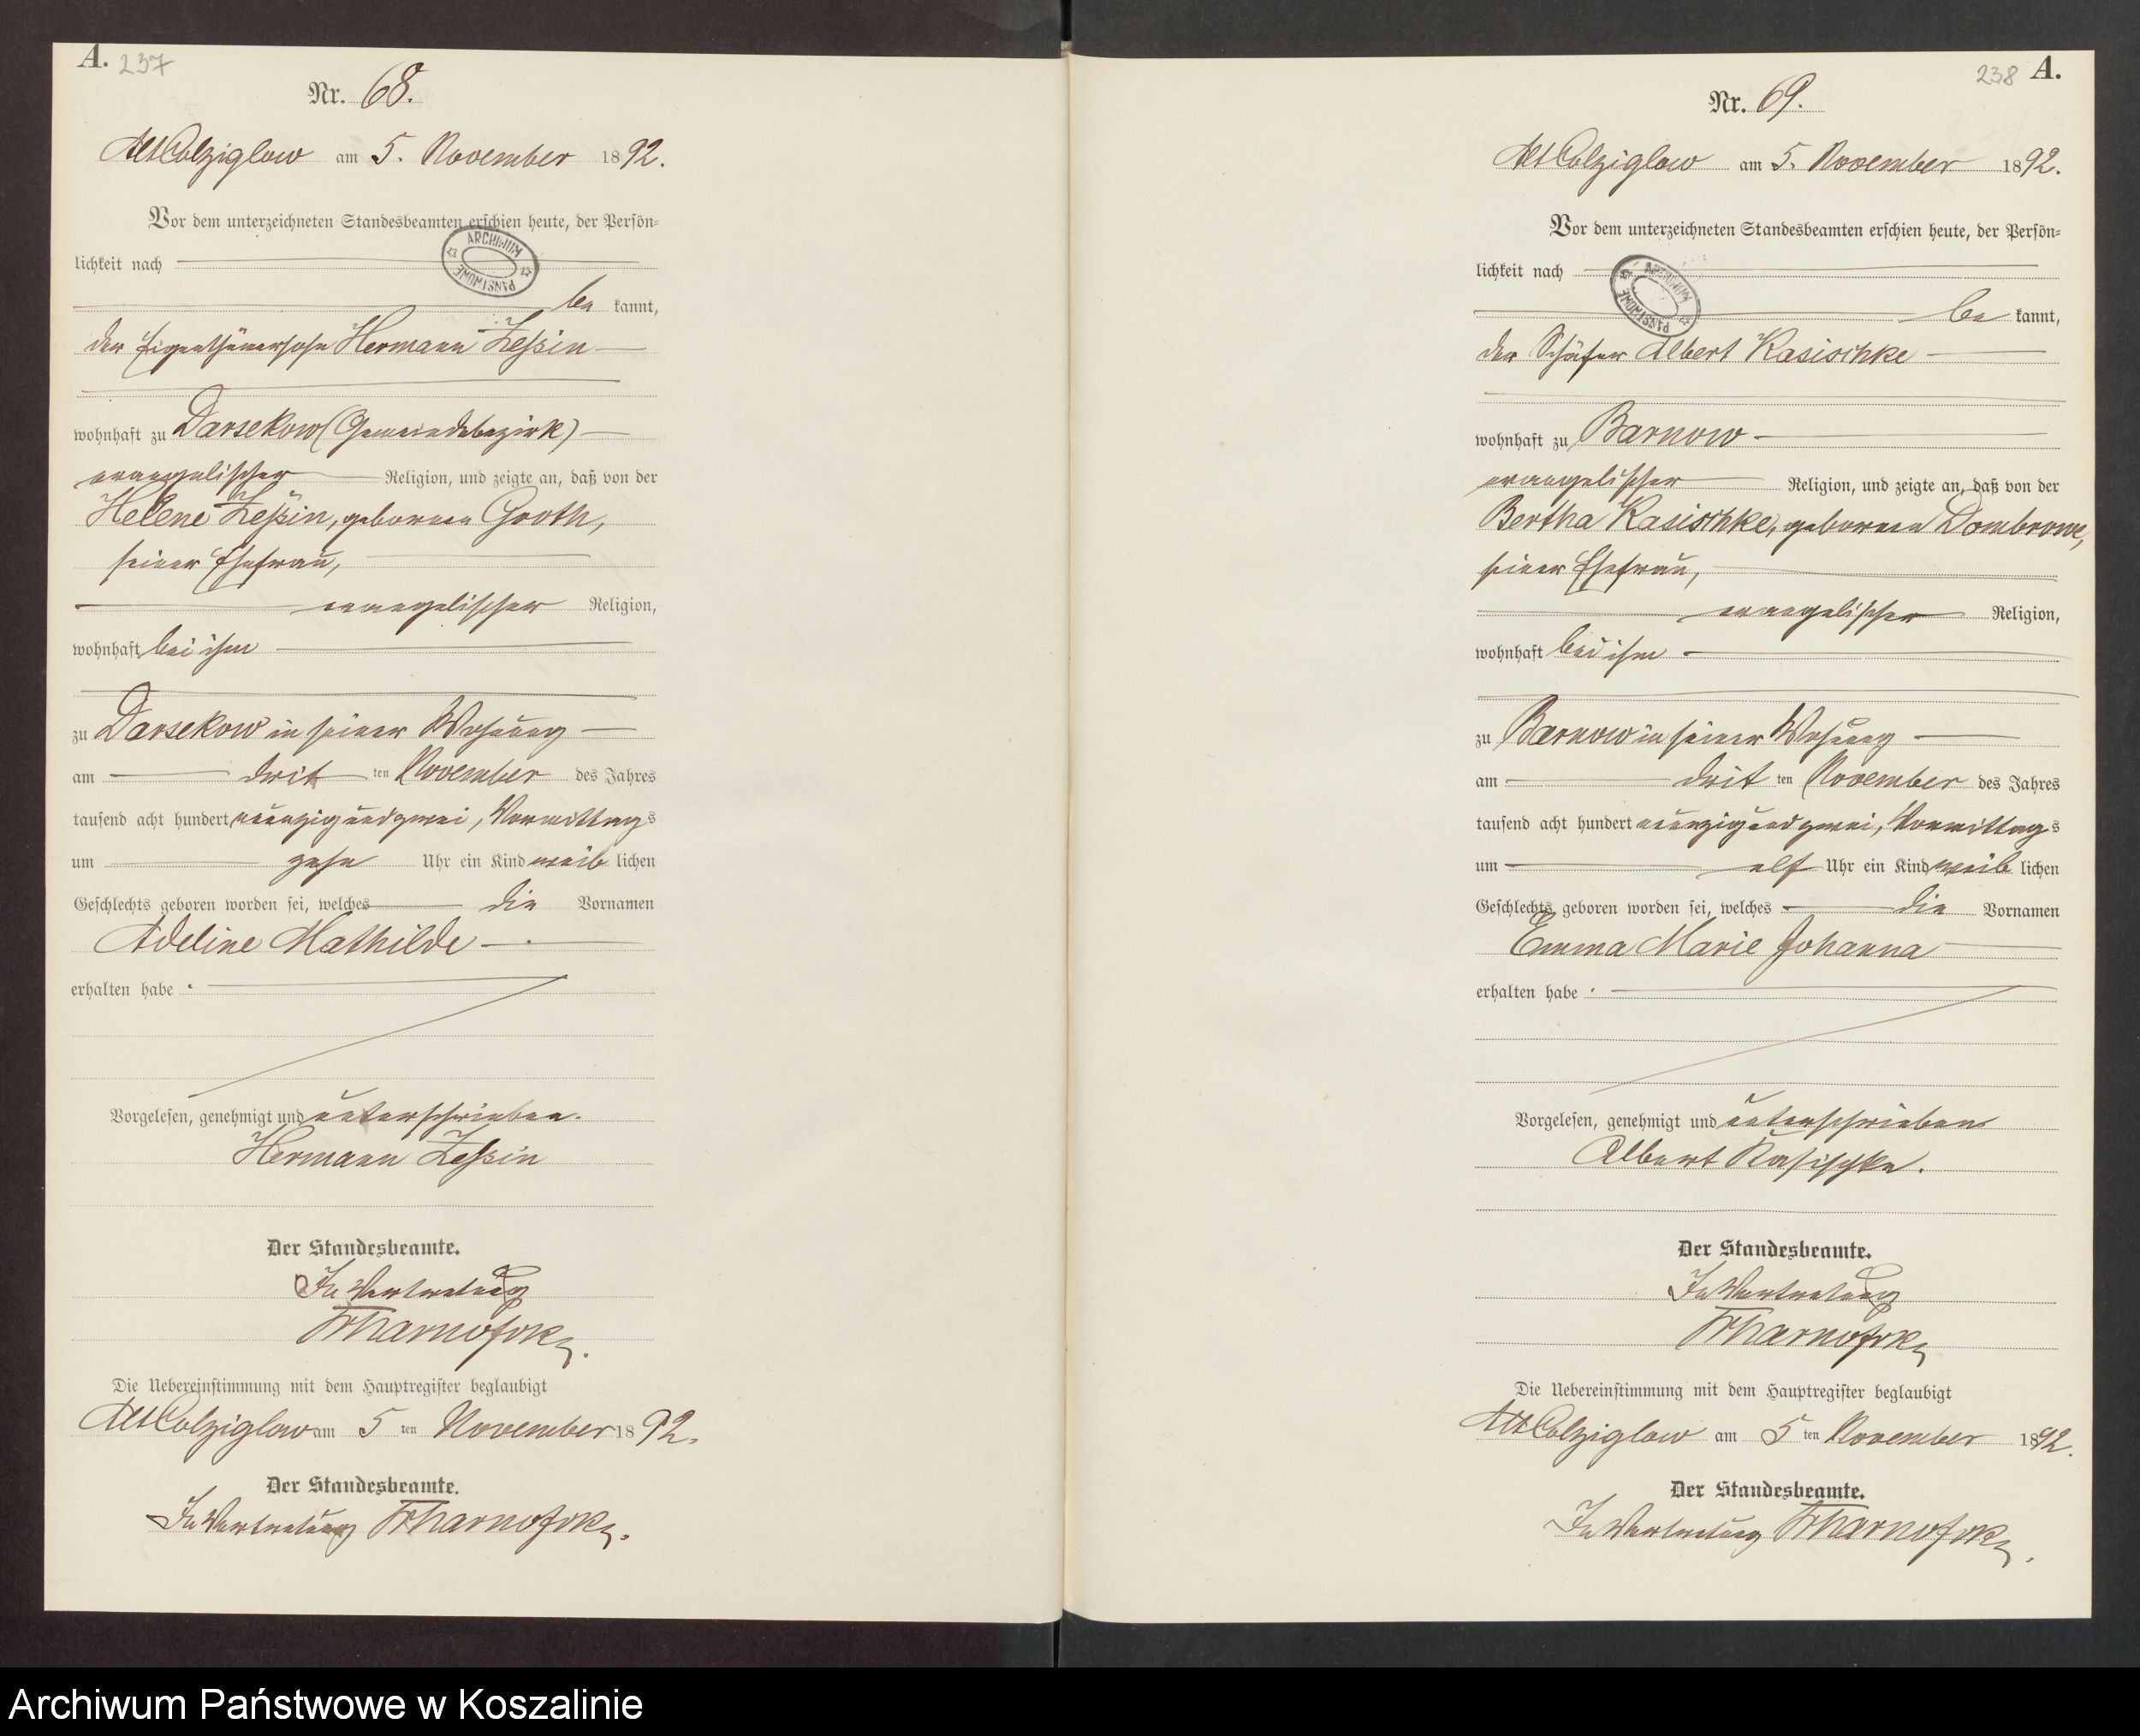 A. 237
Nr. 68.
Alt Colziglow am 5. November 1892.
Vor dem unterzeichneten Standesbeamten erschien heute, der Persön-
lichkeit nach
ARCHIWUM PAŃSTWOWE
be kannt,
der Eigenthümersohn Hermann Zessin
wohnhaft zu Darsekow (Gemeindebezirk)
evangelischer Religion, und zeigte an, daß von der
Helene Zessin, geborenen Groth,
seiner Ehefrau,
evangelischer Religion,
wohnhaft bei ihm
zu Darsekow in seiner Wohnung
am dritten November des Jahres
tausend acht hundert neunzig und zwei, Vormittags
um zehn Uhr ein Kind weiblichen
Geschlechts geboren worden sei, welches die Vornamen
Adeline Mathilde
erhalten habe.
Vorgelesen, genehmigt und unterschrieben.
Hermann Zessin
Der Standesbeamte.
In Vertretung
Die Uebereinstimmung mit dem Hauptregister beglaubigt
Alt Colziglow am 5ten November 1892.
Der Standesbeamte.
In Vertretung
238 A.
Nr. 69.
Alt Colziglow am 5. November 1892.
Vor dem unterzeichneten Standesbeamten erschien heute, der Persön-
lichkeit nach
ARCHIWUM PAŃSTWOWE
be kannt,
der Schäfer Albert Kasischke
wohnhaft zu Barnow
evangelischer Religion, und zeigte an, daß von der
Bertha Kasischke, geborenen Dombrowe,
seiner Ehefrau,
evangelischer Religion,
wohnhaft bei ihm
zu Barnow in seiner Wohnung
am dritten November des Jahres
tausend acht hundert neunzig und zwei, Vormittags
um elf Uhr ein Kind weiblichen
Geschlechts geboren worden sei, welches die Vornamen
Emma Marie Johanna
erhalten habe.
Vorgelesen, genehmigt und unterschrieben
Albert Kasischke.
Der Standesbeamte.
In Vertretung
Die Uebereinstimmung mit dem Hauptregister beglaubigt
Alt Colziglow am 5ten November 1892.
Der Standesbeamte.
In Vertretung
Archiwum Państwowe w Koszalinie